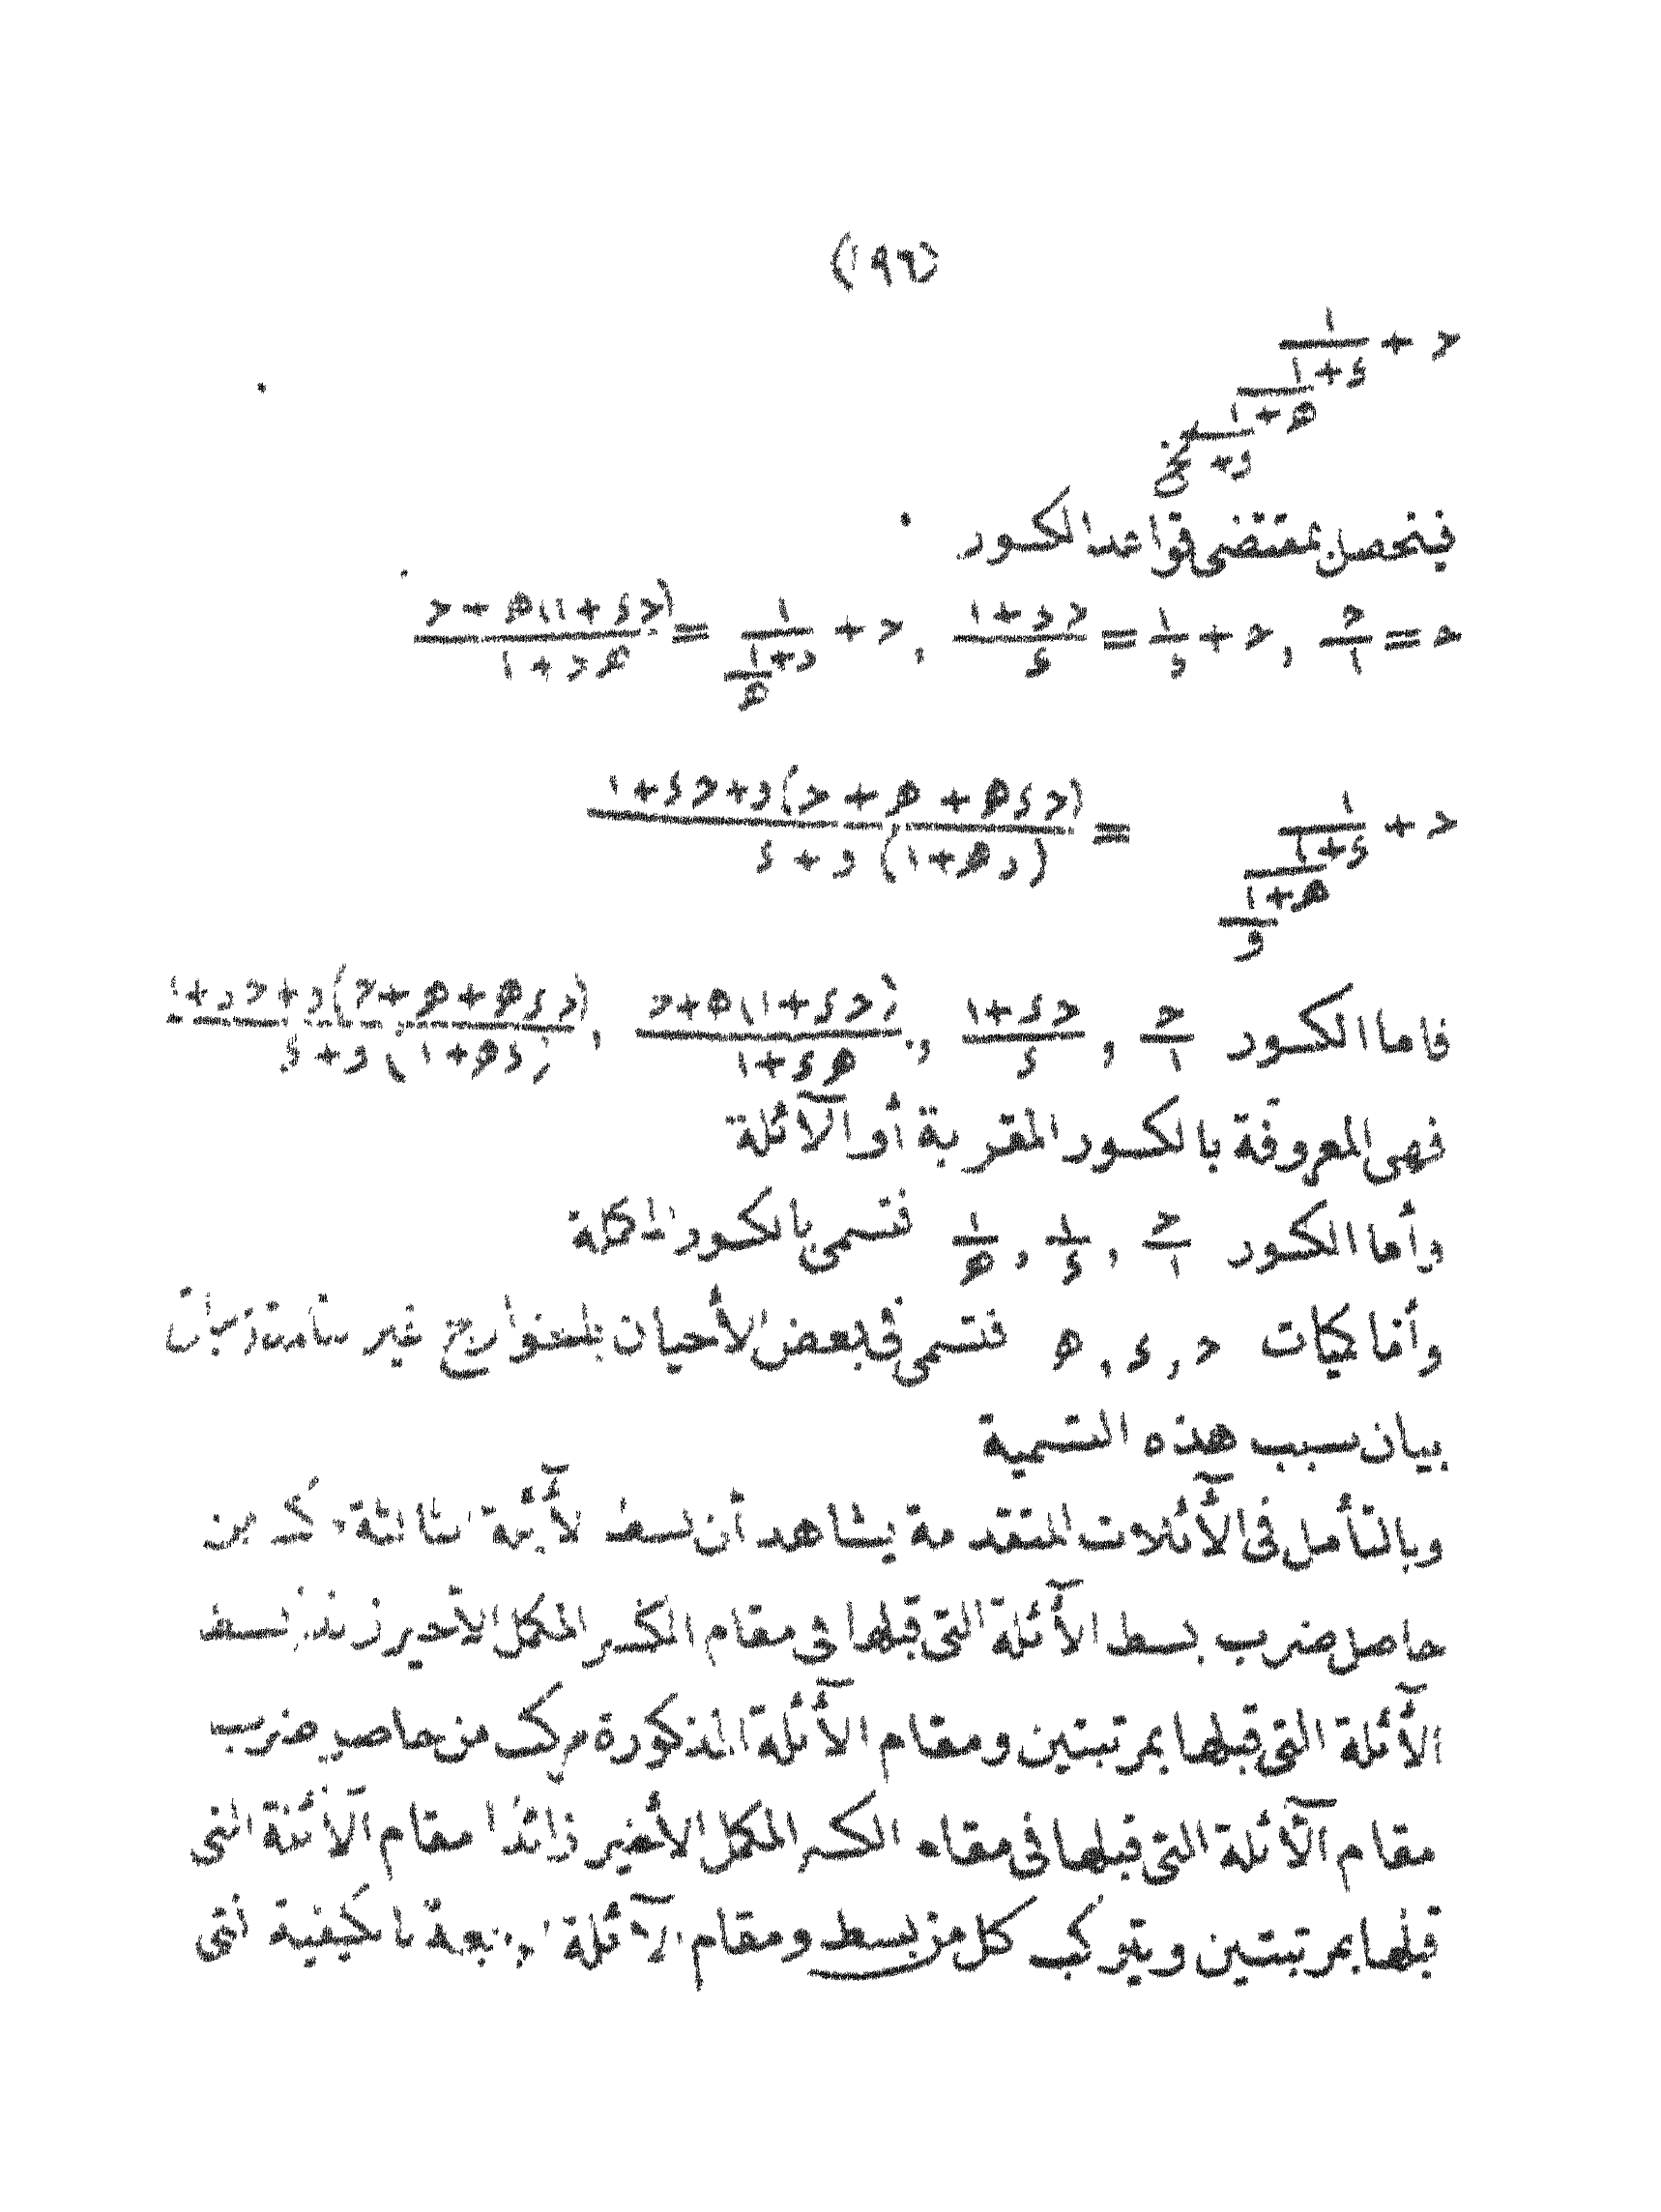 (١٩٦)
ح + ١/(٤ + ١/(ه + ١/(و + الخ
فيتحصل بمقتضى قواعد الكسور
ح = ح/١ , ح + ١/د = (ح د + ١)/د , ح + ١/(د + ١/ه) = ((ح د + ١) ه + ح)/(ه د + ١)
ح + ١/(د + ١/(ه + ١/و)) = ((ح د ه + ه + ح) و + ح د + ١)/((د ه + ١) و + د)
فاما الكسور ح/١ , (ح د + ١)/د , ((ح د + ١) ه + ح)/(ه د + ١) , ((ح د ه + ه + ح) و + ح د + ١)/((د ه + ١) و + د)
فهى المعروفة بالكسور المقربة أو الآئلة
وأما الكسور ح/١ , ١/د , ١/ه فتسمى بالكسور المكملة
وأما كميات ح , د , ه فتسمى فى بعض الأحيان بالخوارج غير تامة
بيان سبب هذه التسمية
وبالتأمل فى الآئلات المتقدمة يشاهد أن بسط الآئلة الثالثة من
حاصل ضرب بسط الآئلة التى قبلها فى مقام الكسر المكمل الأخير زائدا بسط
الآئلة التى قبلها بمرتبتين ومقام الآئلة المذكورة مركب من حاصل ضرب
مقام الآئلة التى قبلها فى مقام الكسر المكمل الأخير زائدا مقام الآئلة التى
قبلها بمرتبتين ويتركب كل من بسط ومقام الآئلة الرابعة بالكيفية التى